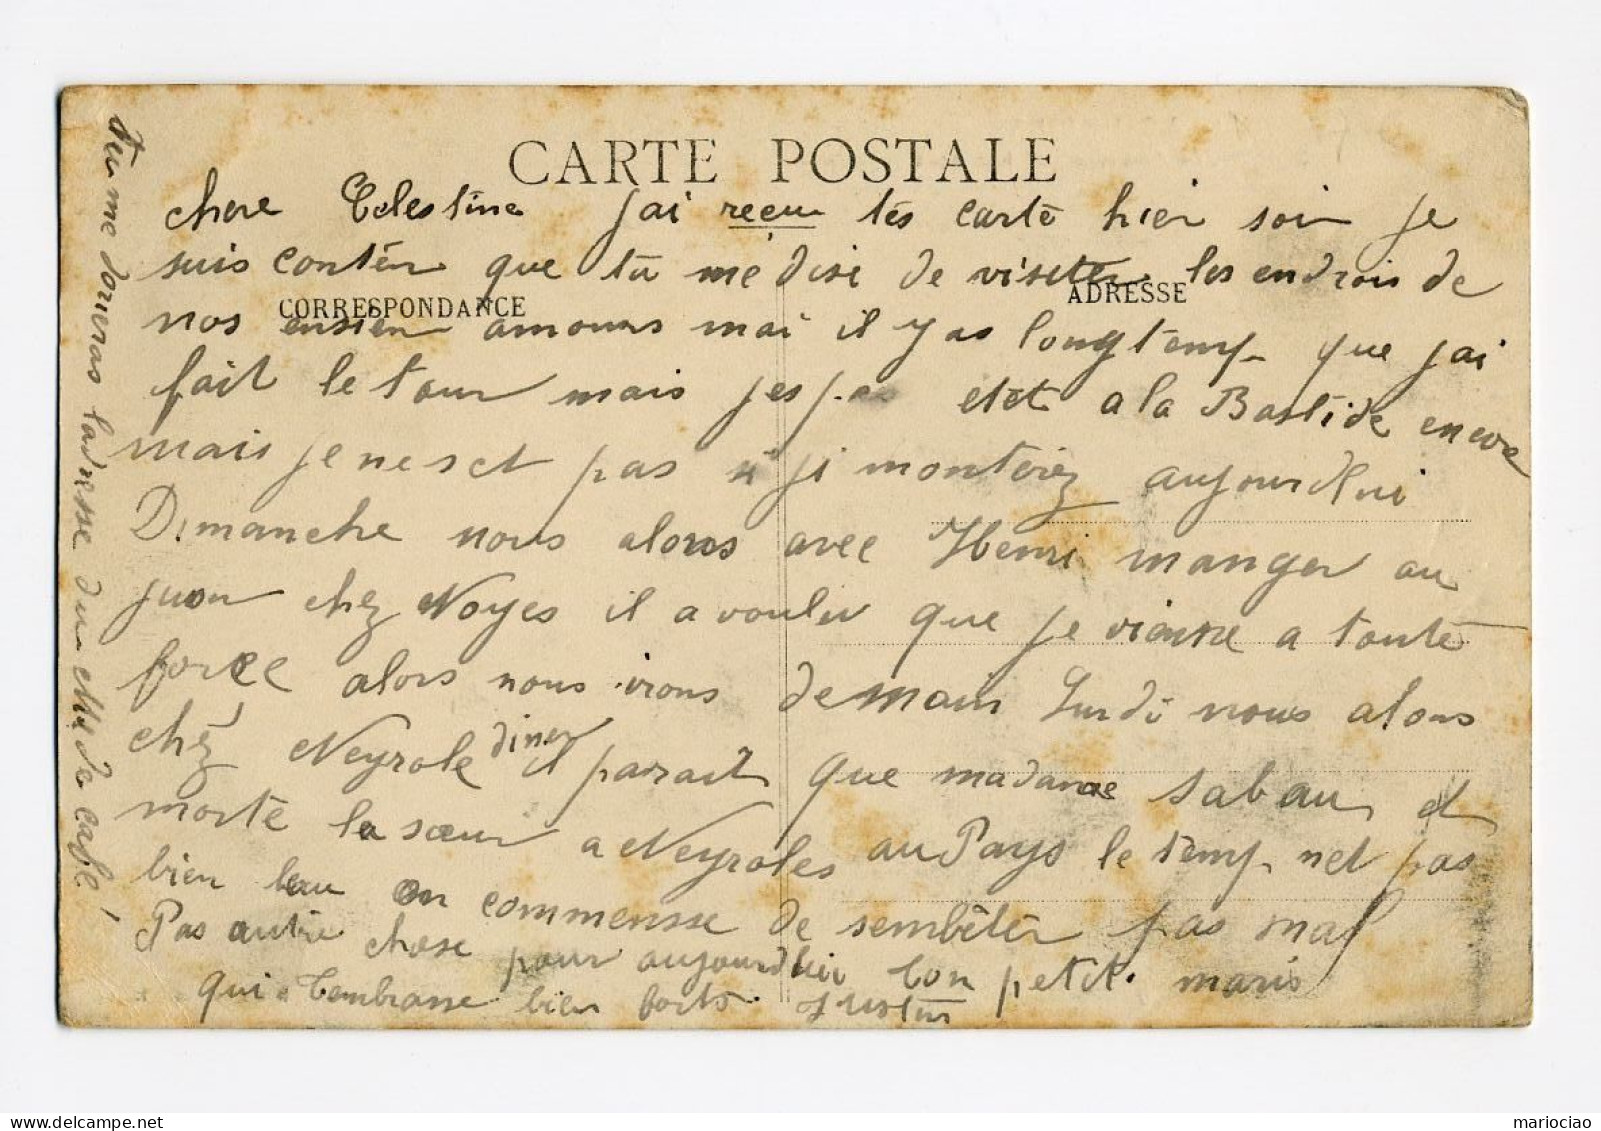 CARTE POSTALE
chere Celestine j'ai reçu tés carte hier soir je
suis contén que tu me disé de visiter les endrois de
CORRESPONDANCE
ADRESSE
nos ensien amours mai il y as longtemp que jai
fait le tour mais jes pas etét a la Bastide encore
mais je ne set pas si ji monterez aujourdhui
Dimanche nous alons avec Henri manger au
chez Noyes il a voulu que je vienne a toute
force alors nous irons demain Lundi nous alons
chéz Neyrole diner il parait que madame Sabau et
morte la sœur a Neyroles au Pays le temp net pas
bien beau on commensse de sembéter pas mal
Pas autre chose pour aujourdhui ton petit maris
qui tembrasse bien forts Justin
tu me doneras ladresse du de café
mariociao